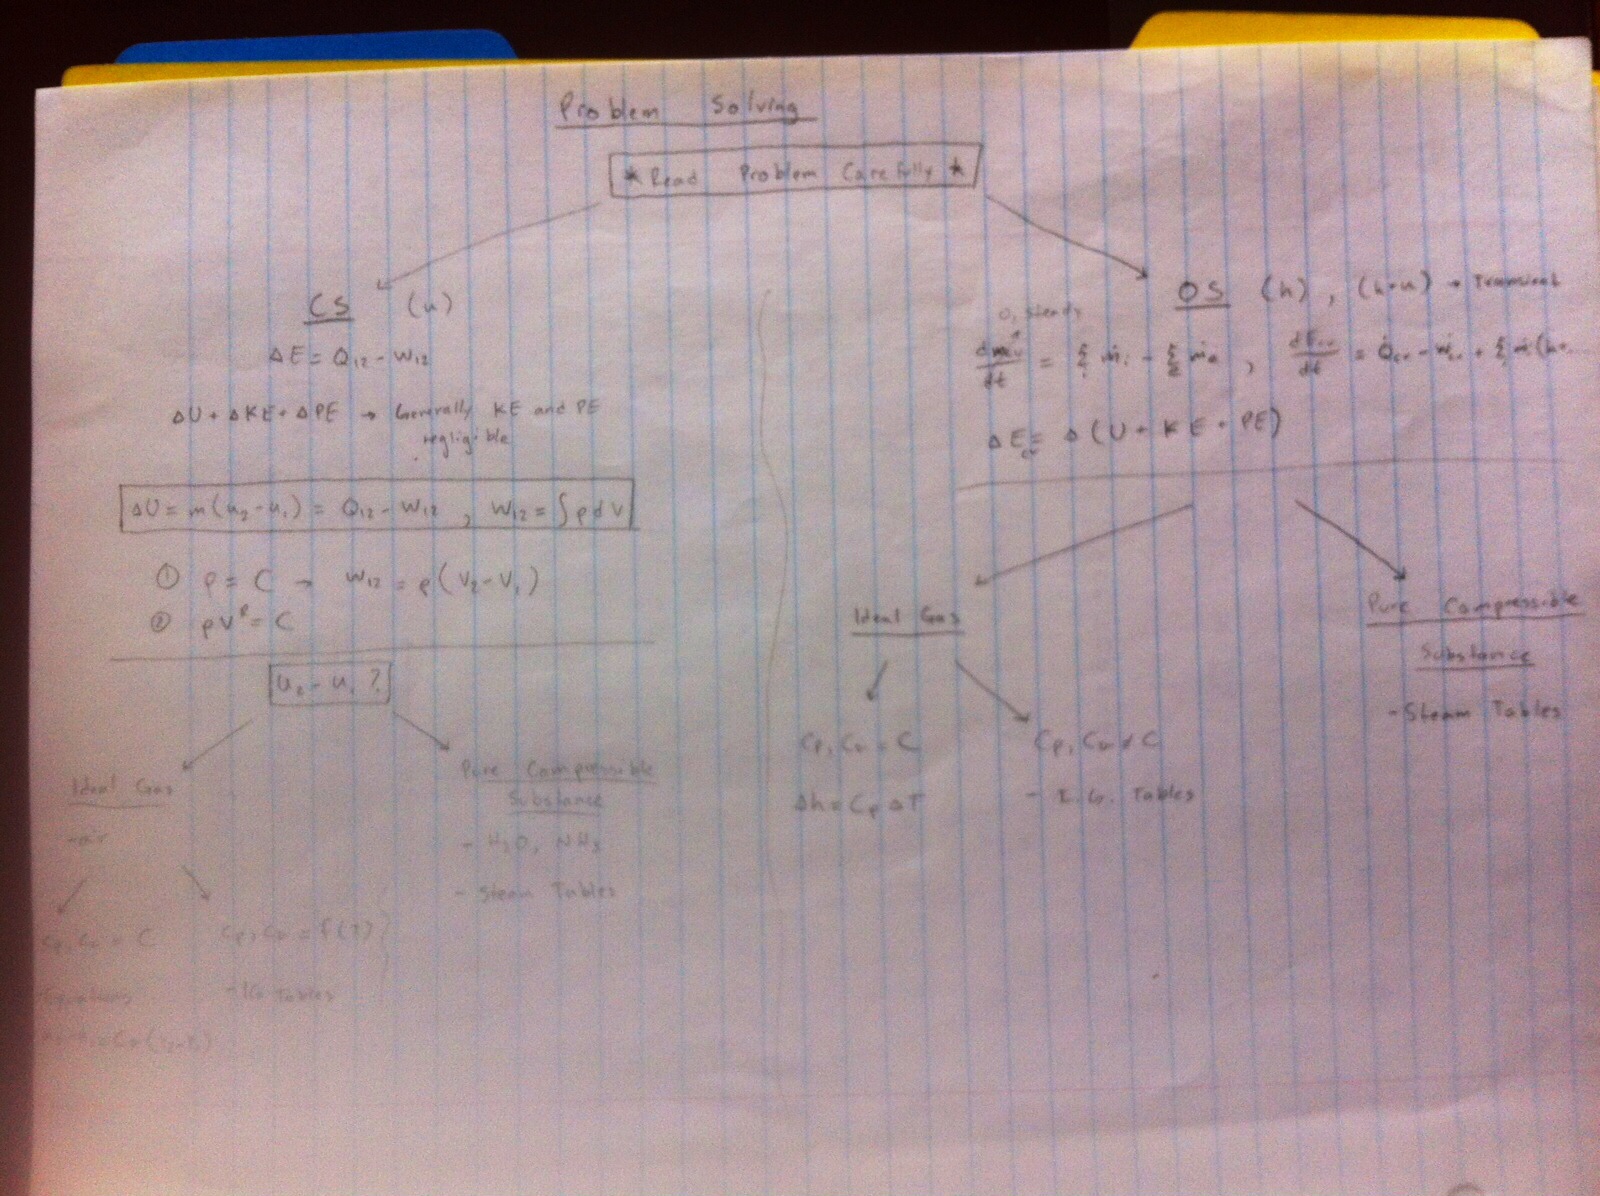 Problem Solving
* Read Problem Carefully *
CS (u)
ΔE = Q12 - W12
ΔU + ΔKE + ΔPE → Generally KE and PE
negligible
ΔU = m(u2-u1) = Q12 - W12 , W12 = ∫pdV
① p = C → W12 = p(V2-V1)
② pVⁿ = C
u2 - u1 ?
Ideal Gas
-air
Cp, Cv = C
Equations
= Cv(T2-T1)
Cp, Cv = f(T)
- IG Tables
Pure Compressible
Substance
- H2O, NH3
- Steam Tables
OS (h) , (h+u) → Transient
0, steady
dmcv/dt = Σi ṁi - Σe ṁe , dEcv/dt = Q̇cv - Ẇcv + Σi ṁi(h+
ΔEcv = Δ(U + KE + PE)
Ideal Gas
Cp, Cv = C
Δh = Cp ΔT
Cp, Cv ≠ C
- I.G. Tables
Pure Compressible
Substance
- Steam Tables